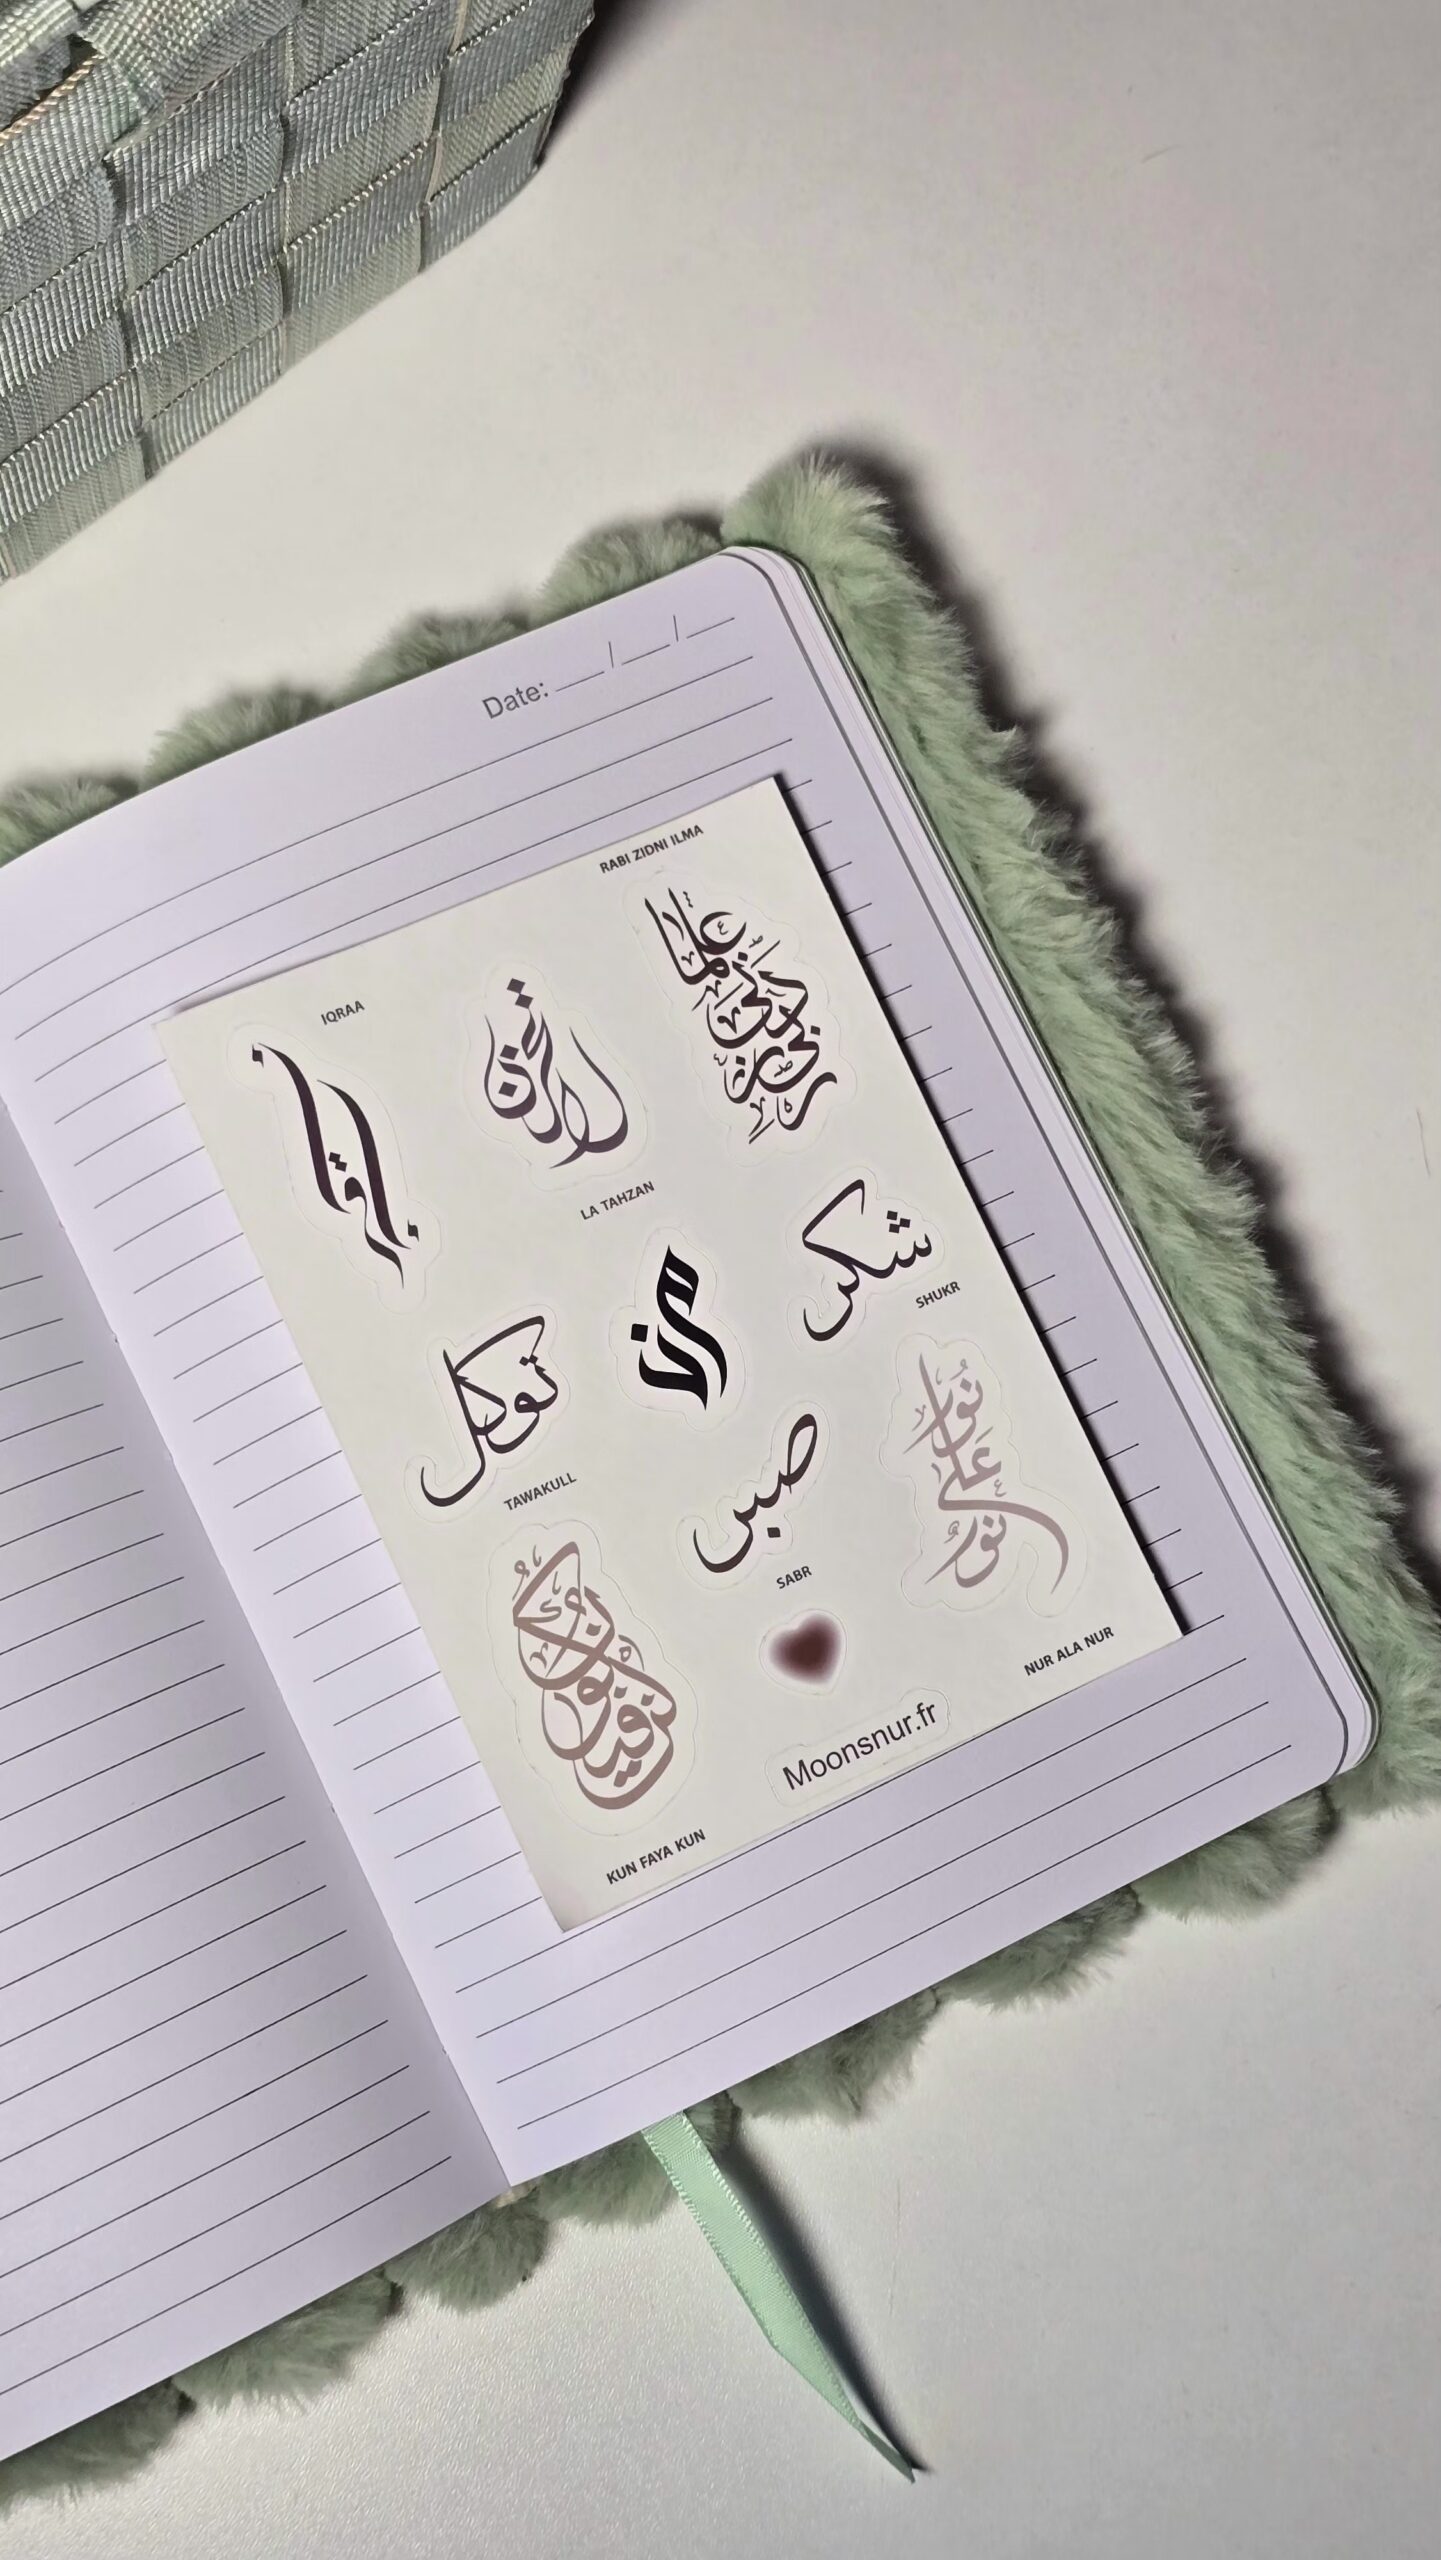 Date: __/__/__
RABI ZIDNI ILMA
رَبِّي زِدْنِي عِلْمًا
IQRAA
اقرأ
لا تحزن
LA TAHZAN
شكر
SHUKR
توكل
TAWAKULL
صبر
SABR
نُورٌ عَلَى نُورٍ
NUR ALA NUR
كن فيكون
KUN FAYA KUN
Moonsnur.fr